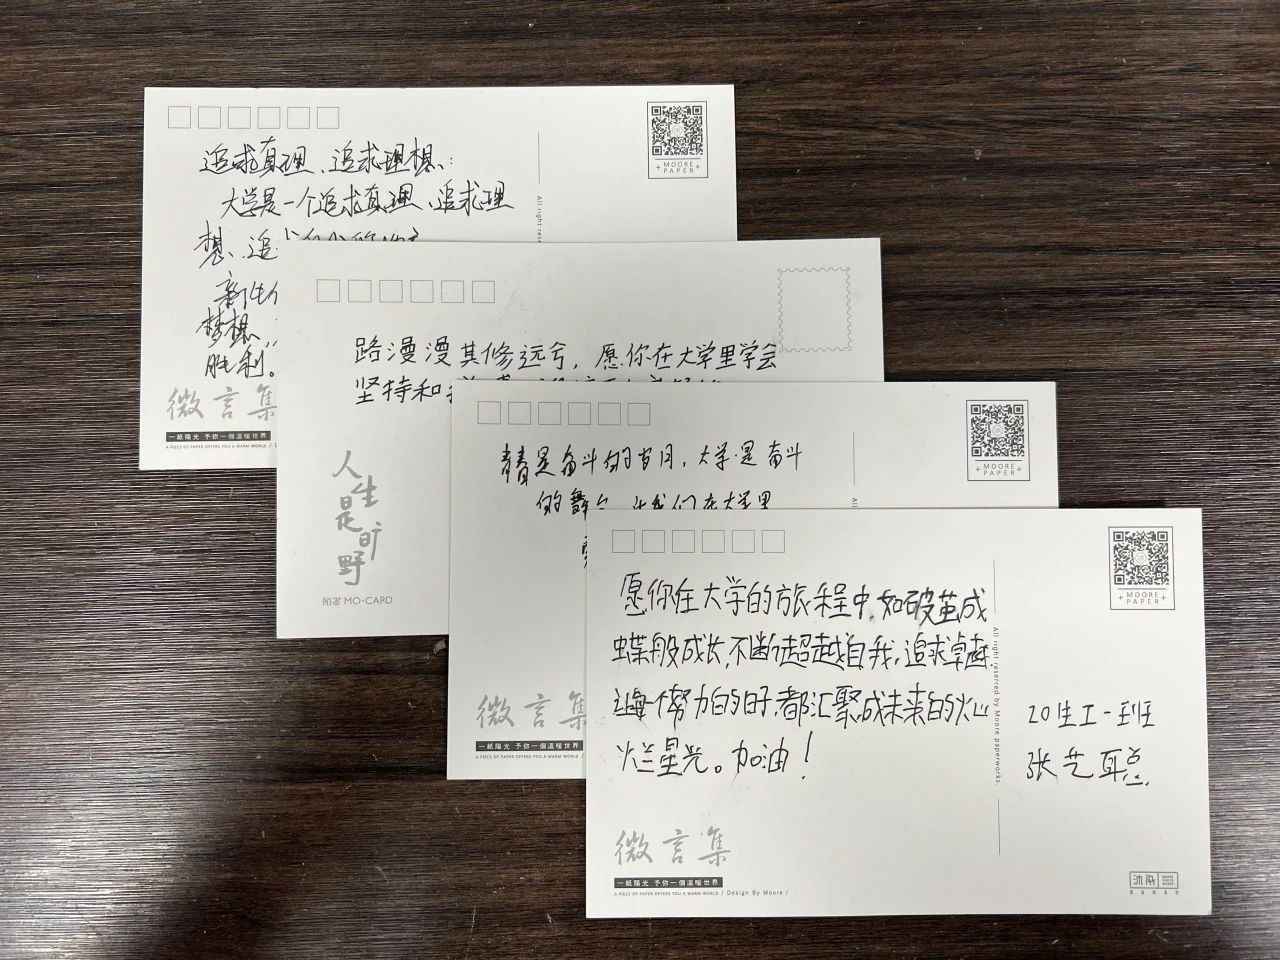 追求真理、追求理想、:
大学是一个追求真理、追求理
想、追
梦想、
胜利。
微言集
一紙陽光 予你一個溫暖世界
A PIECE OF PAPER OFFERS YOU A WARM WORLD /
MOORE
PAPER
All right rese
路漫漫其修远兮，愿你在大学里学会
坚持和
人生是旷野
陌寄 MO-CARD
青春是奋斗的岁月，大学是奋斗
的舞台，让我们在大学里
微言集
一紙陽光 予你一個溫暖世界
A PIECE OF PAPER OFFERS YOU A WARM WORLD /
MOORE
PAPER
All
愿你在大学的旅程中，如破茧成
蝶般成长，不断超越自我，追求卓越
让每个努力的日子，都汇聚成未来的火山
烂星光。加油！
20生工一班
张艺聪
微言集
一紙陽光 予你一個溫暖世界
A PIECE OF PAPER OFFERS YOU A WARM WORLD / Design By Moore /
MOORE
PAPER
All right reserved by Moore paperworks.